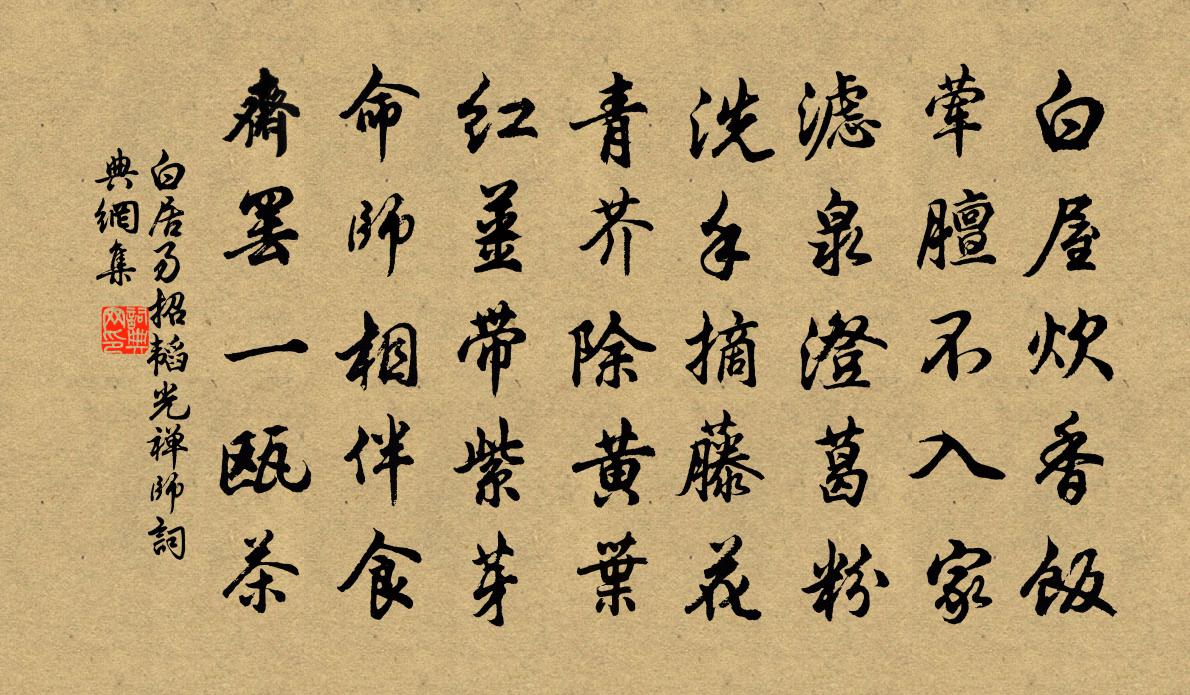 白屋炊香飯
葷膻不入家
濾泉澄葛粉
洗手摘藤花
青芥除黃葉
红薑帶紫芽
命師相伴食
齋罷一甌茶
白居易招韜光禅師詞
典網集
詞典网印